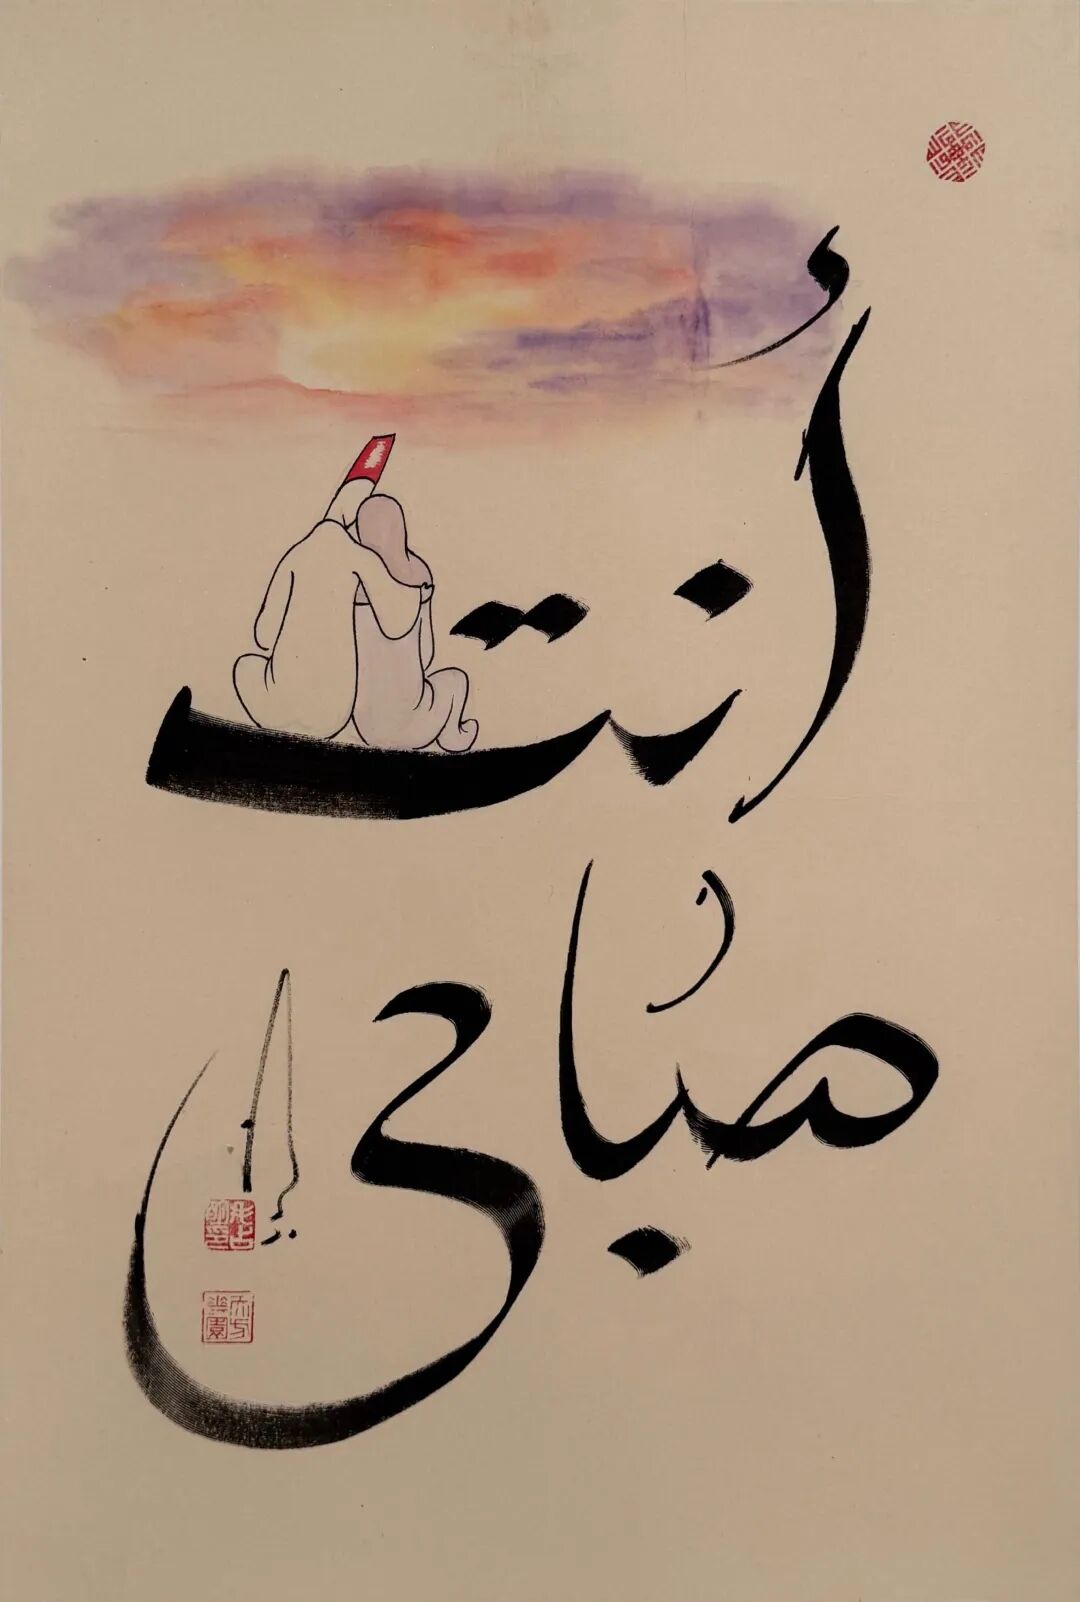 أنت
صباحي